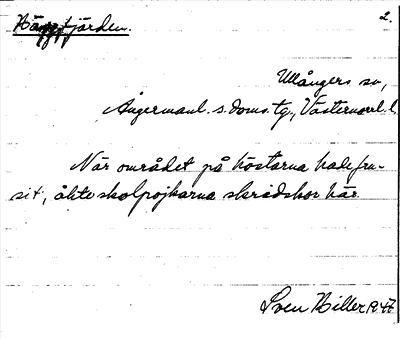 2.
Ullångers sn,
Ångermanl. s. doms. tg., Västernorrl. l.
När området på höstarna hade fru-
sit, åkte skolpojkarna skridskor här.
Sven Hiller 1947